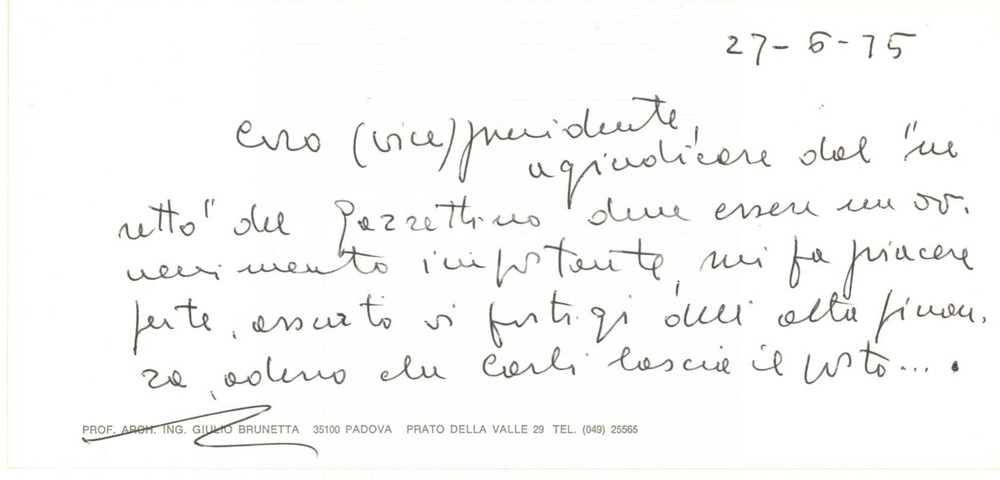 27-6-75
caro (vice)presidente,
a giudicare dal "ne
retto" del Gazzettino deve essere un av.
venimento importante, mi fa piacere
per te, assurto ai fastigi dell'alta finan.
za, adesso che Carli lascia il posto....
PROF. ARCH. ING. GIULIO BRUNETTA 35100 PADOVA PRATO DELLA VALLE 29 TEL. (049) 25565